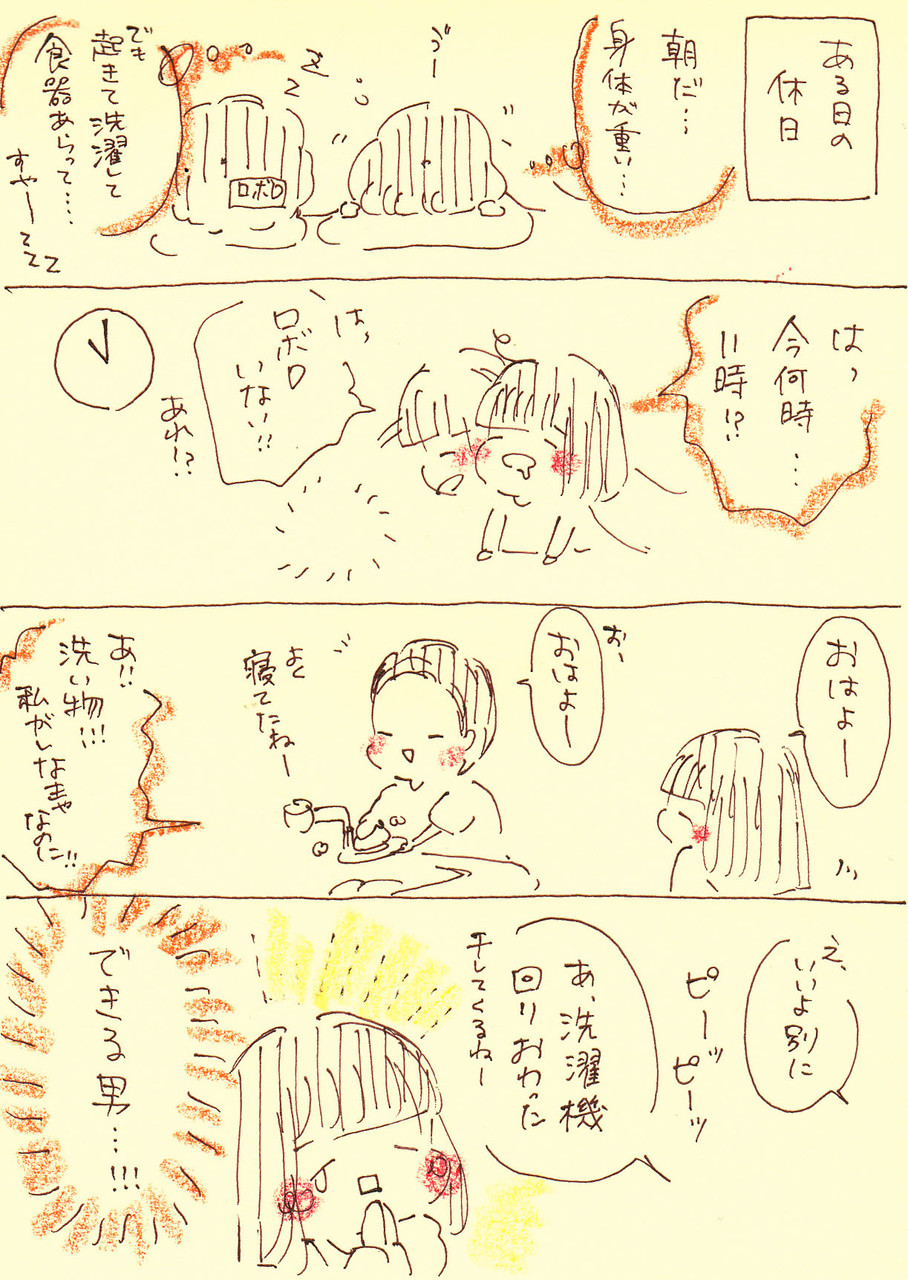 ある日の
休日
朝だ…
身体が重い…
ゔー
zz
ロボロ
でも
起きて洗濯して
食器あらって……
すやーzzz
はっ
今何時…
11時!?
はっ
ロボロ
いない!!
あれ!?
おはよー
お、
おはよー
よく
寝てたねー
あ!!
洗い物!!!
私がしなきゃ
なのに!!
え、
いいよ別に
ピーッピーッ
あ、洗濯機
回りおわった
干してくるねー
できる男…!!!